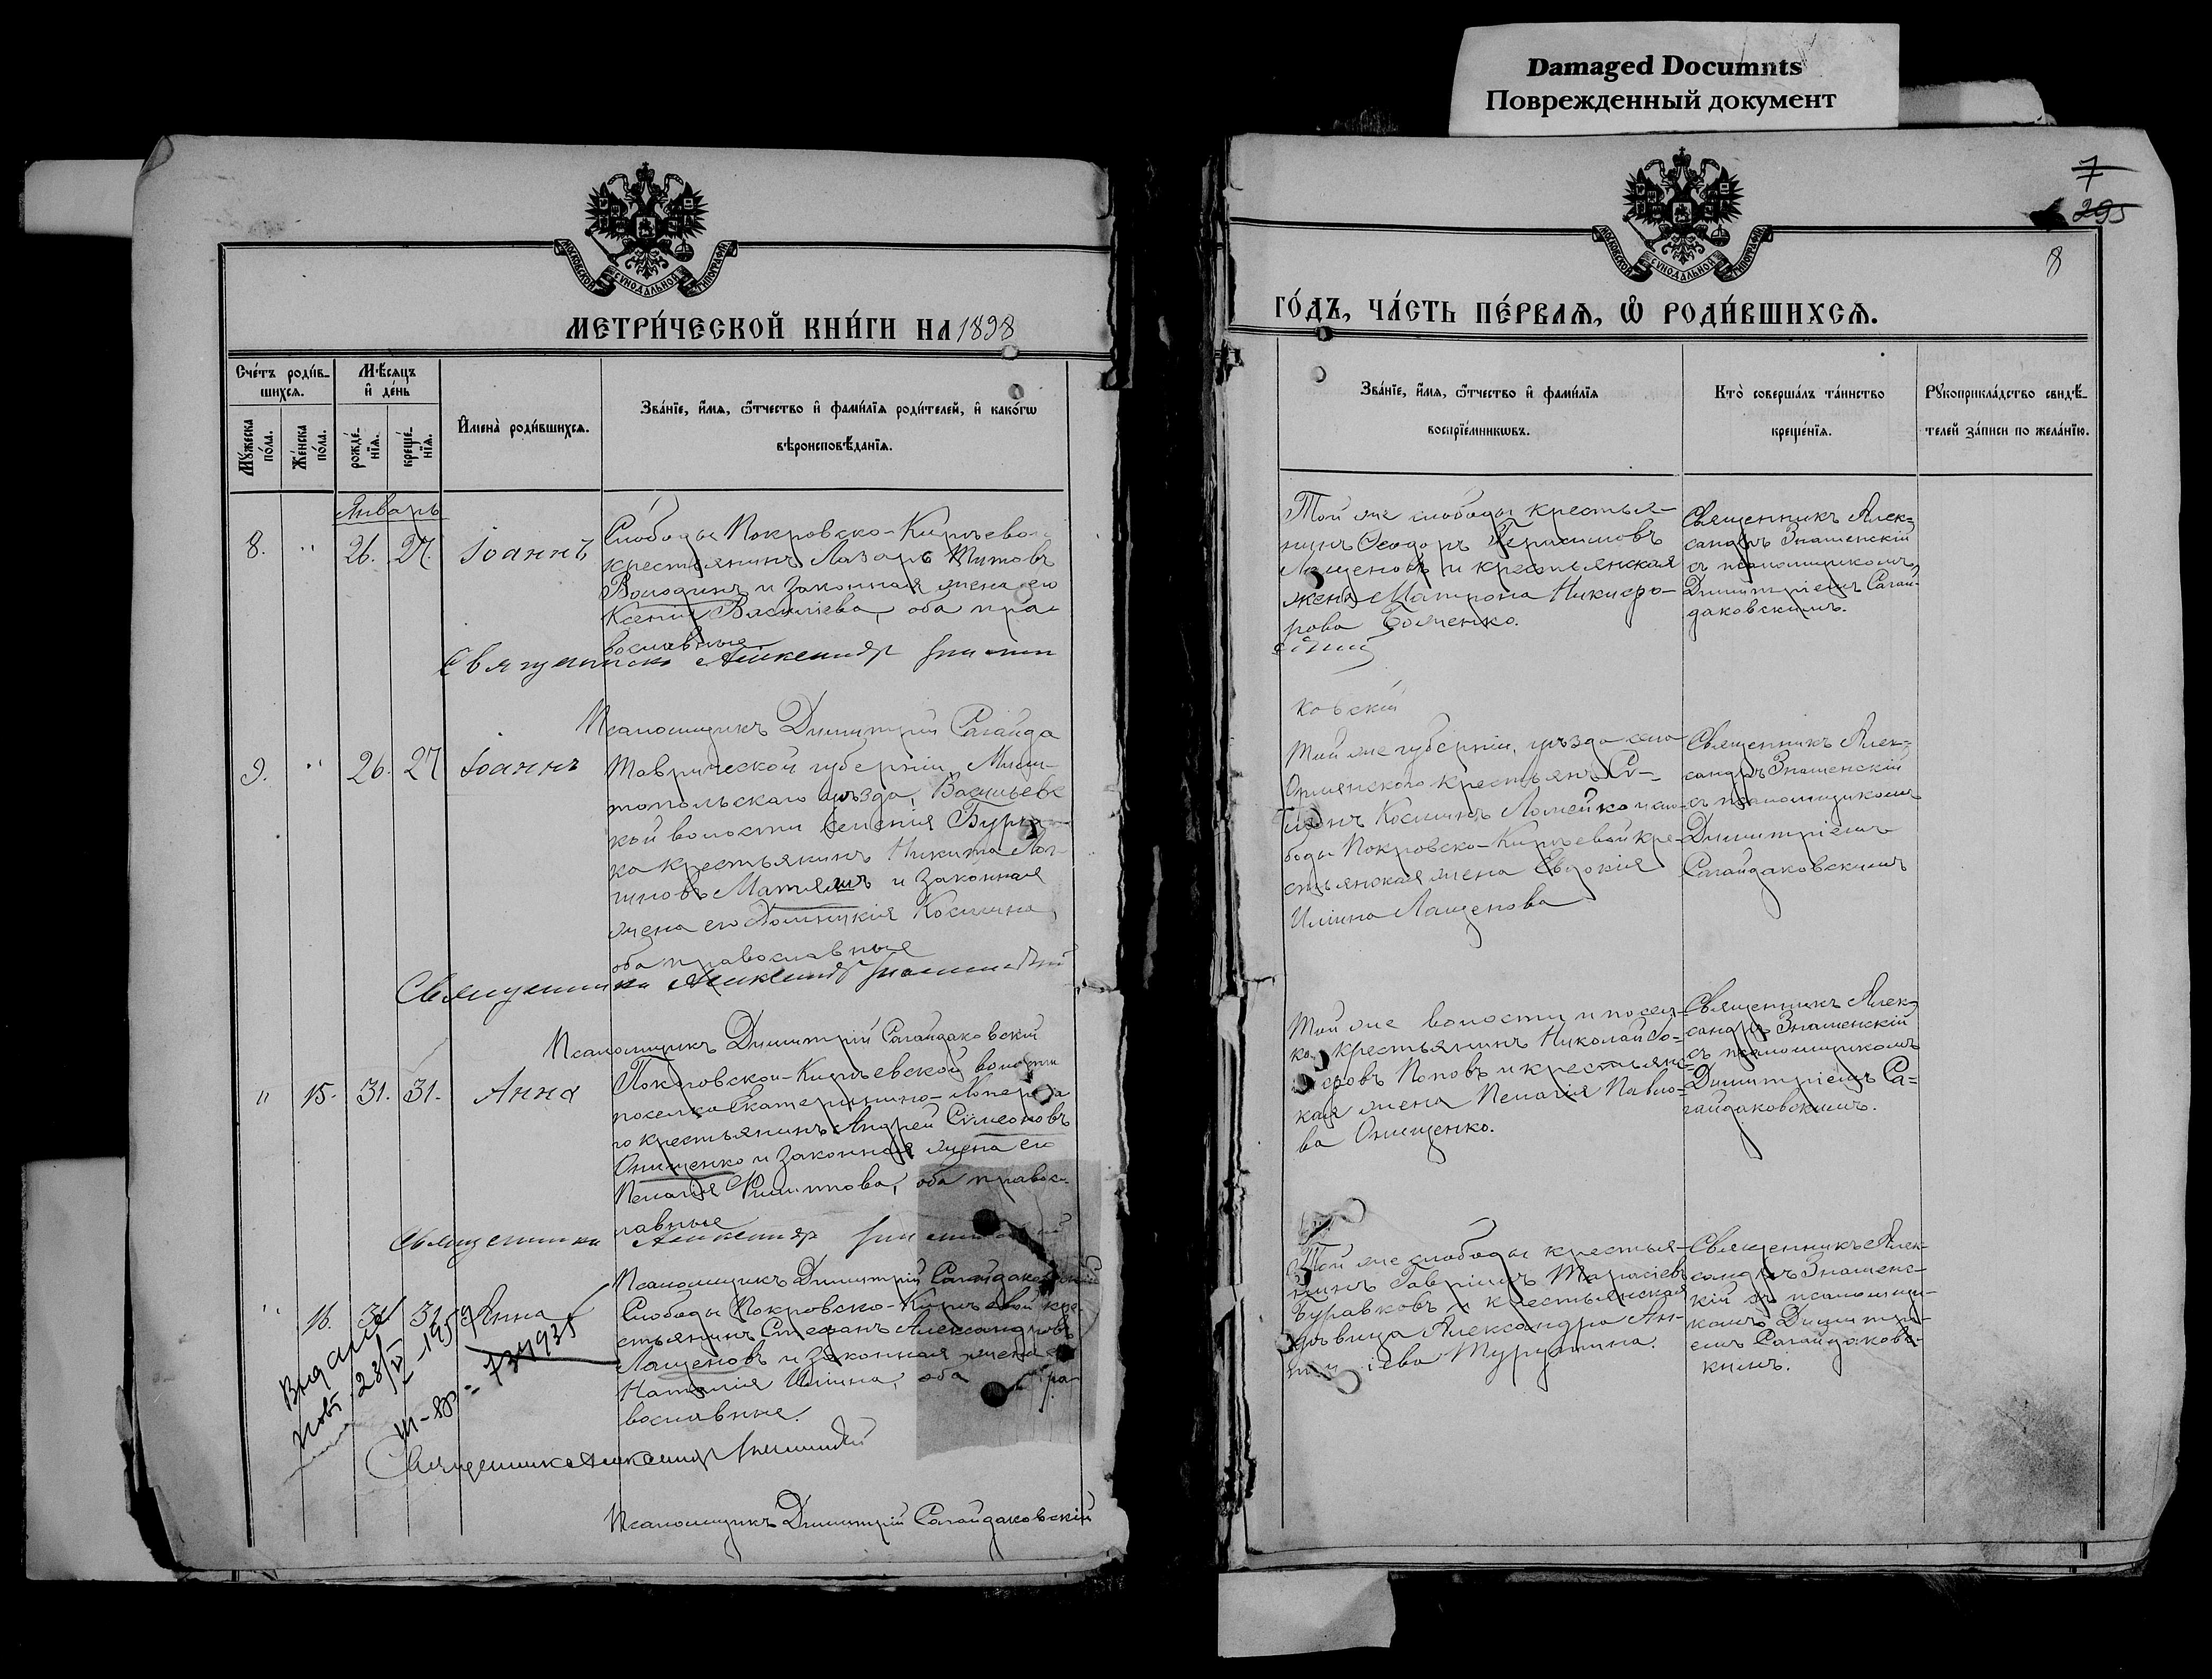 Damaged Documnts
Поврежденный документ
МОСКОВСКОЙ СѴНОДАЛЬНОЙ ТИПОГРАФІИ
МЕТРИ́ЧЕСКОЙ КНИ́ГИ НА 1898
Сче́тъ роди́в-
шихся.
Мѣ́сяцъ
и҆ де́нь
Мꙋ́жеска
по́ла.
Же́нска
по́ла.
рожде́-
нїя.
креще́-
нїя.
И҆мена̀ роди́вшихся.
Зва́нїе, и҆́мя, ѻ҆́тчество и҆ фами́лїя роди́телей, и҆ како́гѡ
вѣроисповѣ́данїя.
Январь
8. " 26. 27. Іоаннъ
Слободы Покровско-Кирѣевой
крестьянинъ Лазарь Титовъ
Володинъ и законная жена его
Ксенія Василіева, оба пра-
вославные
Священникъ Александр
Псаломщикъ Димитрій Сагайда
9. " 26. 27 Іоаннъ
Таврической губерніи, Мели-
топольскаго уѣзда, Васильевс
кой волости селенія
ка крестьянинъ Никита Лог-
гиновъ и законная
жена его Домникія Космина,
оба православные
Священникъ Александр Знаменскій
Псаломщикъ Димитрій Сагайдаковскій
" 15. 31. 31. Анна
Покровско-Кирѣевской волости
поселка Екатеринино-
го крестьянинъ Андрей Симеоновъ
Онищенко и законная жена его
Пелагія Филиппова, оба правос-
лавные
Священникъ Александр Знаменскій
Псаломщикъ Димитрій Сагайдаковскій
" 16. 31 31 Анна
Слободы Покровско-Кирѣевой кре-
стьянинъ Стефанъ Александровъ
Лащеновъ и законная жена е
Наталія Иліина, оба пра-
вославные.
734935
Священникъ Александр Знаменскій
Псаломщикъ Димитрій Сагайдаковскій
7
295
8
МОСКОВСКОЙ СѴНОДАЛЬНОЙ ТИПОГРАФІИ
ГО́ДЪ, ЧА́СТЬ ПЕ́РВАЯ, Ѡ҆ РОДИ́ВШИХСЯ.
Зва́нїе, и҆́мя, ѻ҆́тчество и҆ фами́лїя
воспрїе́мникѡвъ.
Кто̀ соверша́лъ та́инство
креще́нїя.
Рꙋкоприкла́дство свидѣ́-
телей за́писи по жела́нїю.
Той же слободы крестья-
нинъ Ѳеодоръ Герасимовъ
Лащеновъ и крестьянская
жена Матрона Никифо-
рова
Священникъ Алек-
сандръ Знаменскій
съ псаломщикомъ
Димитріемъ Сагай-
даковскимъ.
ковскій
Той же губерніи, уѣзда села
крестьян. Си-
меонъ Косминъ Ломейко и сло-
боды Покровско-Кирѣевой кре-
стьянская жена Евдокія
Иліина Лащенова
Священникъ Алек-
сандръ Знаменскій
съ псаломщикомъ
Димитріемъ
Сагайдаковскимъ
Той же волости и посел-
ка крестьянинъ Николай
Поповъ и крестьянс-
кая жена Пелагія Павло-
ва Онищенко.
Священникъ Алек-
сандръ Знаменскій
съ псаломщикомъ
Димитріемъ Са-
гайдаковскимъ.
Той же слободы крестья-
нинъ Гавріилъ Тарасіевъ
Буравковъ и крестьянская
дѣвица Александра Ан-
Турушина.
Священникъ Алек-
сандръ Знаменс-
кій съ псаломщи-
комъ Димитрі-
емъ Сагайдаковс-
кимъ.